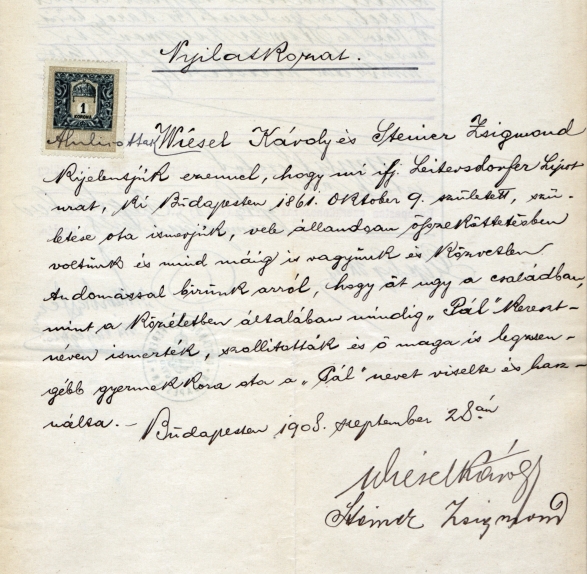 Nyilatkozat.
1
KORONA
Alulirottak Wiesel Károly és Steiner Zsigmond
kijelentjük ezennel, hogy mi ifj. Leitersdorfer Lipót
urat, ki Budapesten 1861. Oktober 9. született, szü-
letése óta ismerjük, vele állandóan összeköttetésben
voltunk és mind máig is vagyunk és közvetlen
tudomással birunk arról, hogy őt ugy a családban,
mint a közéletben általában mindig „Pál" kereszt-
néven ismerték, szollitották és ő maga is legzsen-
gébb gyermekkora óta a „Pál" nevet viselte és hasz-
nálta. —
Budapesten 1908. szeptember 28án
Wiesel Károly
Steiner Zsigmond